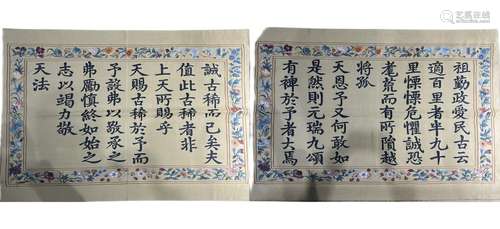 誠古稀而已矣夫
值此古稀者非
上天所賜乎
天賜古稀於予而
予設弗以敬承之
弗勵慎終如始之
志以竭力敬
天法
祖勤政愛民古云
適百里者半九十
里慄慄危懼誠恐
耄荒而有所隕越
將孤
天恩予又何敢如
是然則元瑞九頌
有裨於予者大焉
艺狐在线